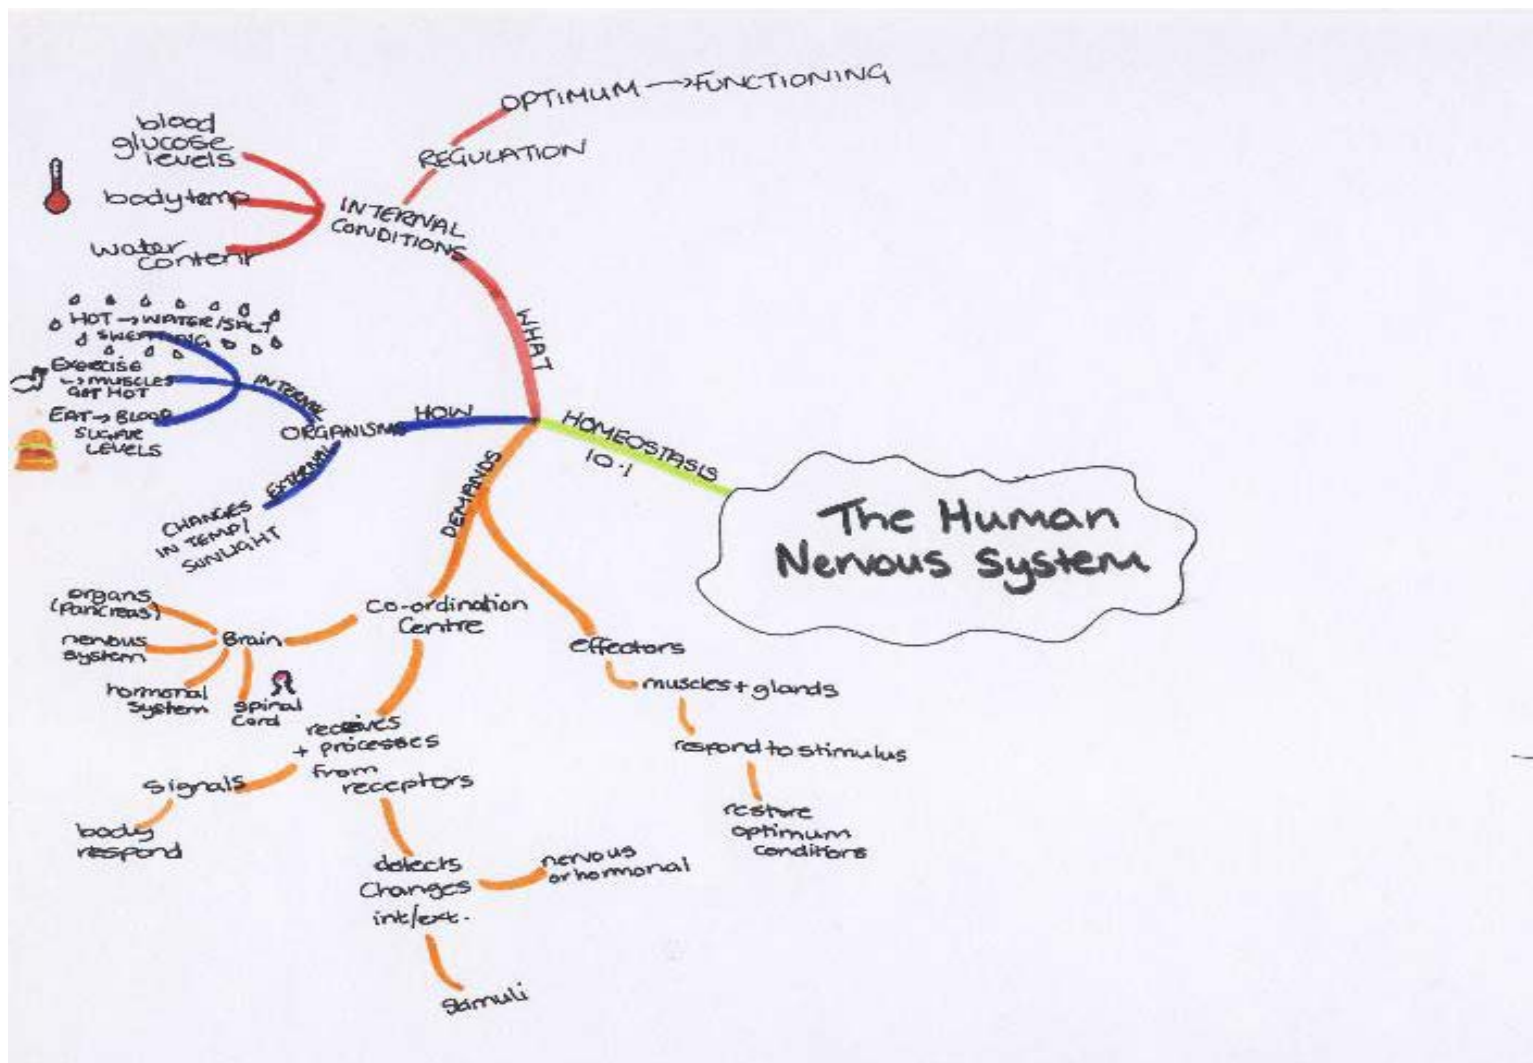 The Human
Nervous System
HOMEOSTASIS
10.1
WHAT
INTERNAL
CONDITIONS
REGULATION
OPTIMUM → FUNCTIONING
blood
glucose
levels
body temp
water
content
HOW
ORGANISMS
INTERNAL
HOT → WATER/SALT
SWEATING
Exercise
↳ MUSCLES
GOT HOT
EAT → BLOOD
SUGAR
LEVELS
EXTERNAL
CHANGES
IN TEMP/
SUNLIGHT
DEMANDS
Co-ordination
Centre
Brain
organs
(pancreas)
nervous
system
hormonal
system
spinal
Cord
receives
+ processes
from
receptors
signals
body
respond
detects
Changes
int/ext.
nervous
or hormonal
stimuli
effectors
muscles + glands
respond to stimulus
restore
optimum
conditions